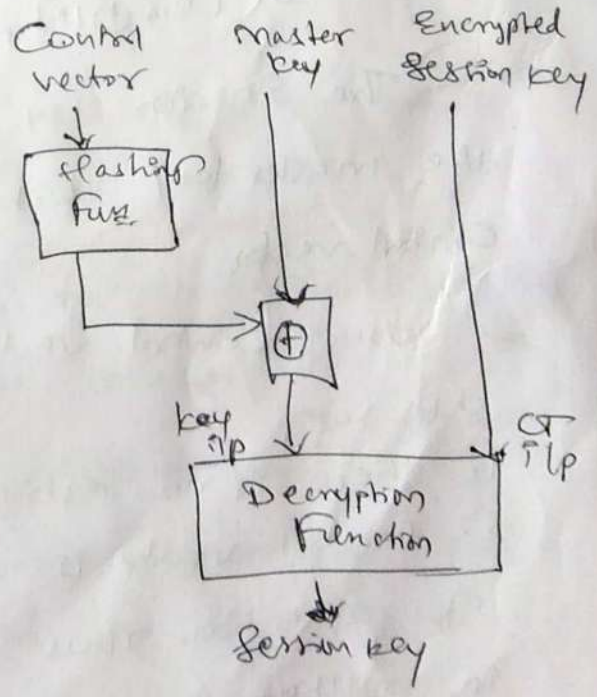 Control
vector
Master
key
Encrypted
Session key
Hashing
Fun
⊕
key
i/p
CT
i/p
Decryption
Function
Session key